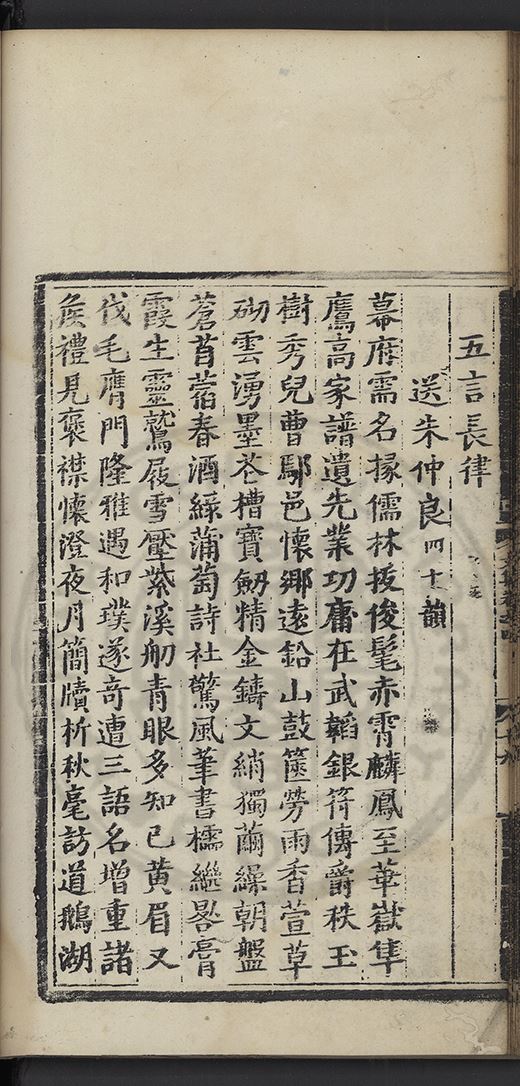 五言長律
送朱仲良四十韻
幕府需名掾儒林拔俊髦赤霄麟鳳至華嶽隼
鷹高家譜遺先業功庸在武韜銀符傳爵秩玉
樹秀兒曹鄢邑懷鄉遠鉛山鼓篋勞雨香萱草
砌雲湧墨花槽寶劒精金鑄文綃獨繭繰朝盤
蒼苜蓿春酒綠蒲萄詩社驚風筆書檠繼晷膏
霞生靈鷲屐雪壓紫溪舠青眼多知己黃眉又
伐毛膺門隆雅遇和璞遂奇遭三語名增重諸
侯禮見褒襟懷澄夜月簡牘析秋毫訪道鵝湖